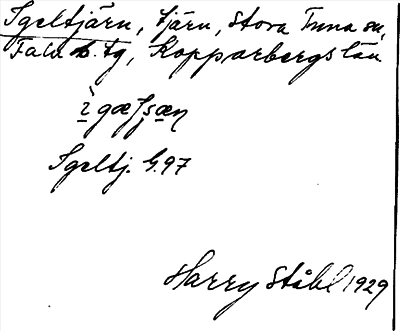 Igeltjärn, tjärn, Stora Tuna sn,
Falu b. tg, Kopparbergs län
Igeltj. G.97
Harry Ståhl 1929